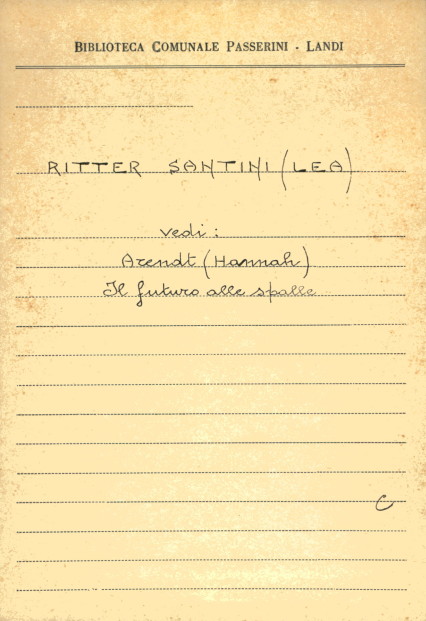 BIBLIOTECA COMUNALE PASSERINI - LANDI
RITTER SANTINI (LEA)
vedi:
Arendt (Hannah)
Il futuro alle spalle
C